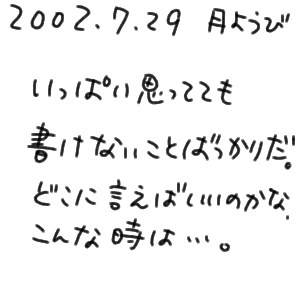 2002.7.29 月ようび
いっぱい思ってても
書けないことばっかりだ。
どこに言えばいいのかな.
こんな時は…。